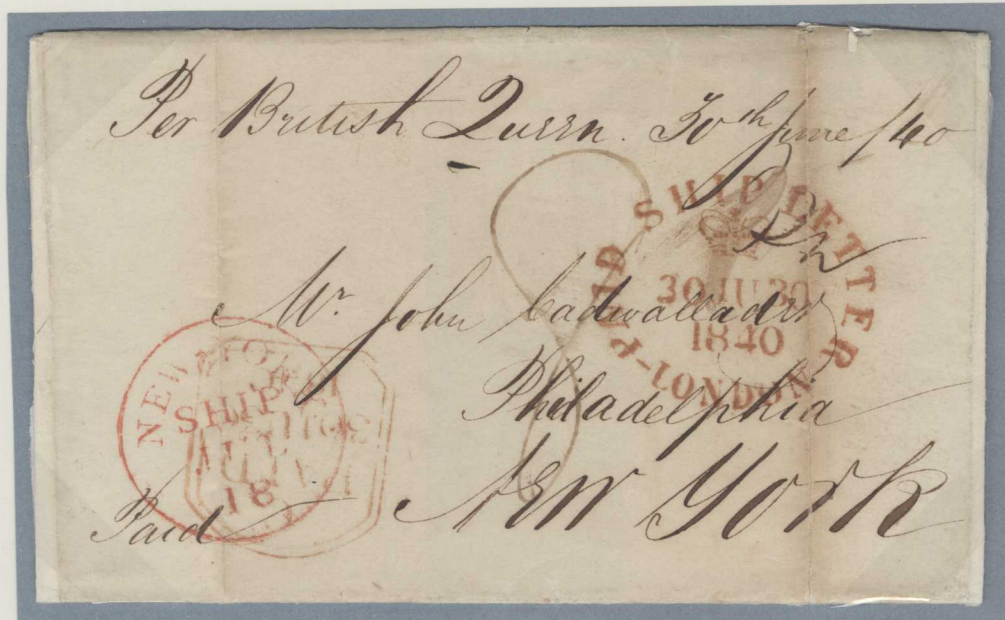 Per British Queen. 30th June /40
PAID SHIP LETTER
30 JU 30
1840
LONDON
Mr. John Cadwallader
Philadelphia
New York
NEW YORK
SHIP
JUL
18
Paid